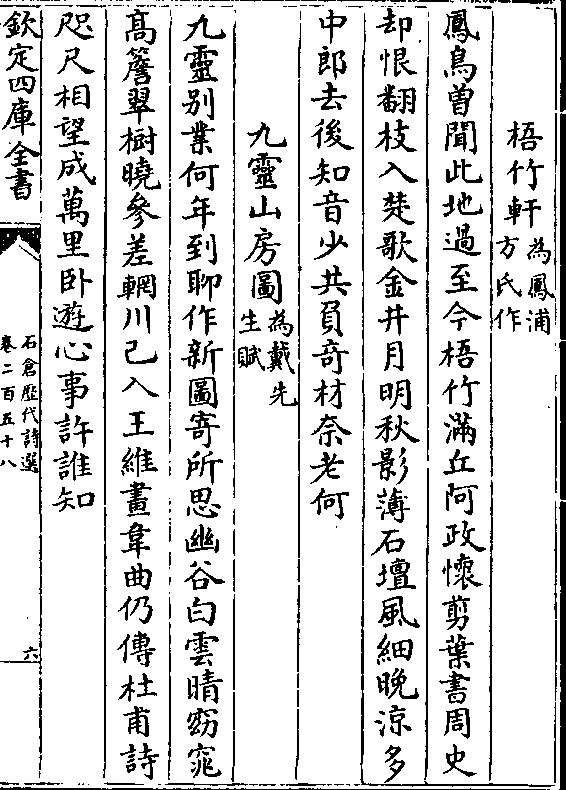 梧竹軒為鳳浦方氏作
鳳鳥曾聞此地過至今梧竹滿丘阿政懷剪葉書周史
却恨翻枝入楚歌金井月明秋影薄石壇風細晚涼多
中郎去後知音少共負竒材奈老何
九靈山房圖為戴先生賦
九靈别業何年到聊作新圖寄所思幽谷白雲晴窈窕
髙簷翠樹曉參差輞川已入王維畫韋曲仍傳杜甫詩
咫尺相望成萬里卧遊心事許誰知
欽定四庫全書
石倉歴代詩選
卷二百五十八
六